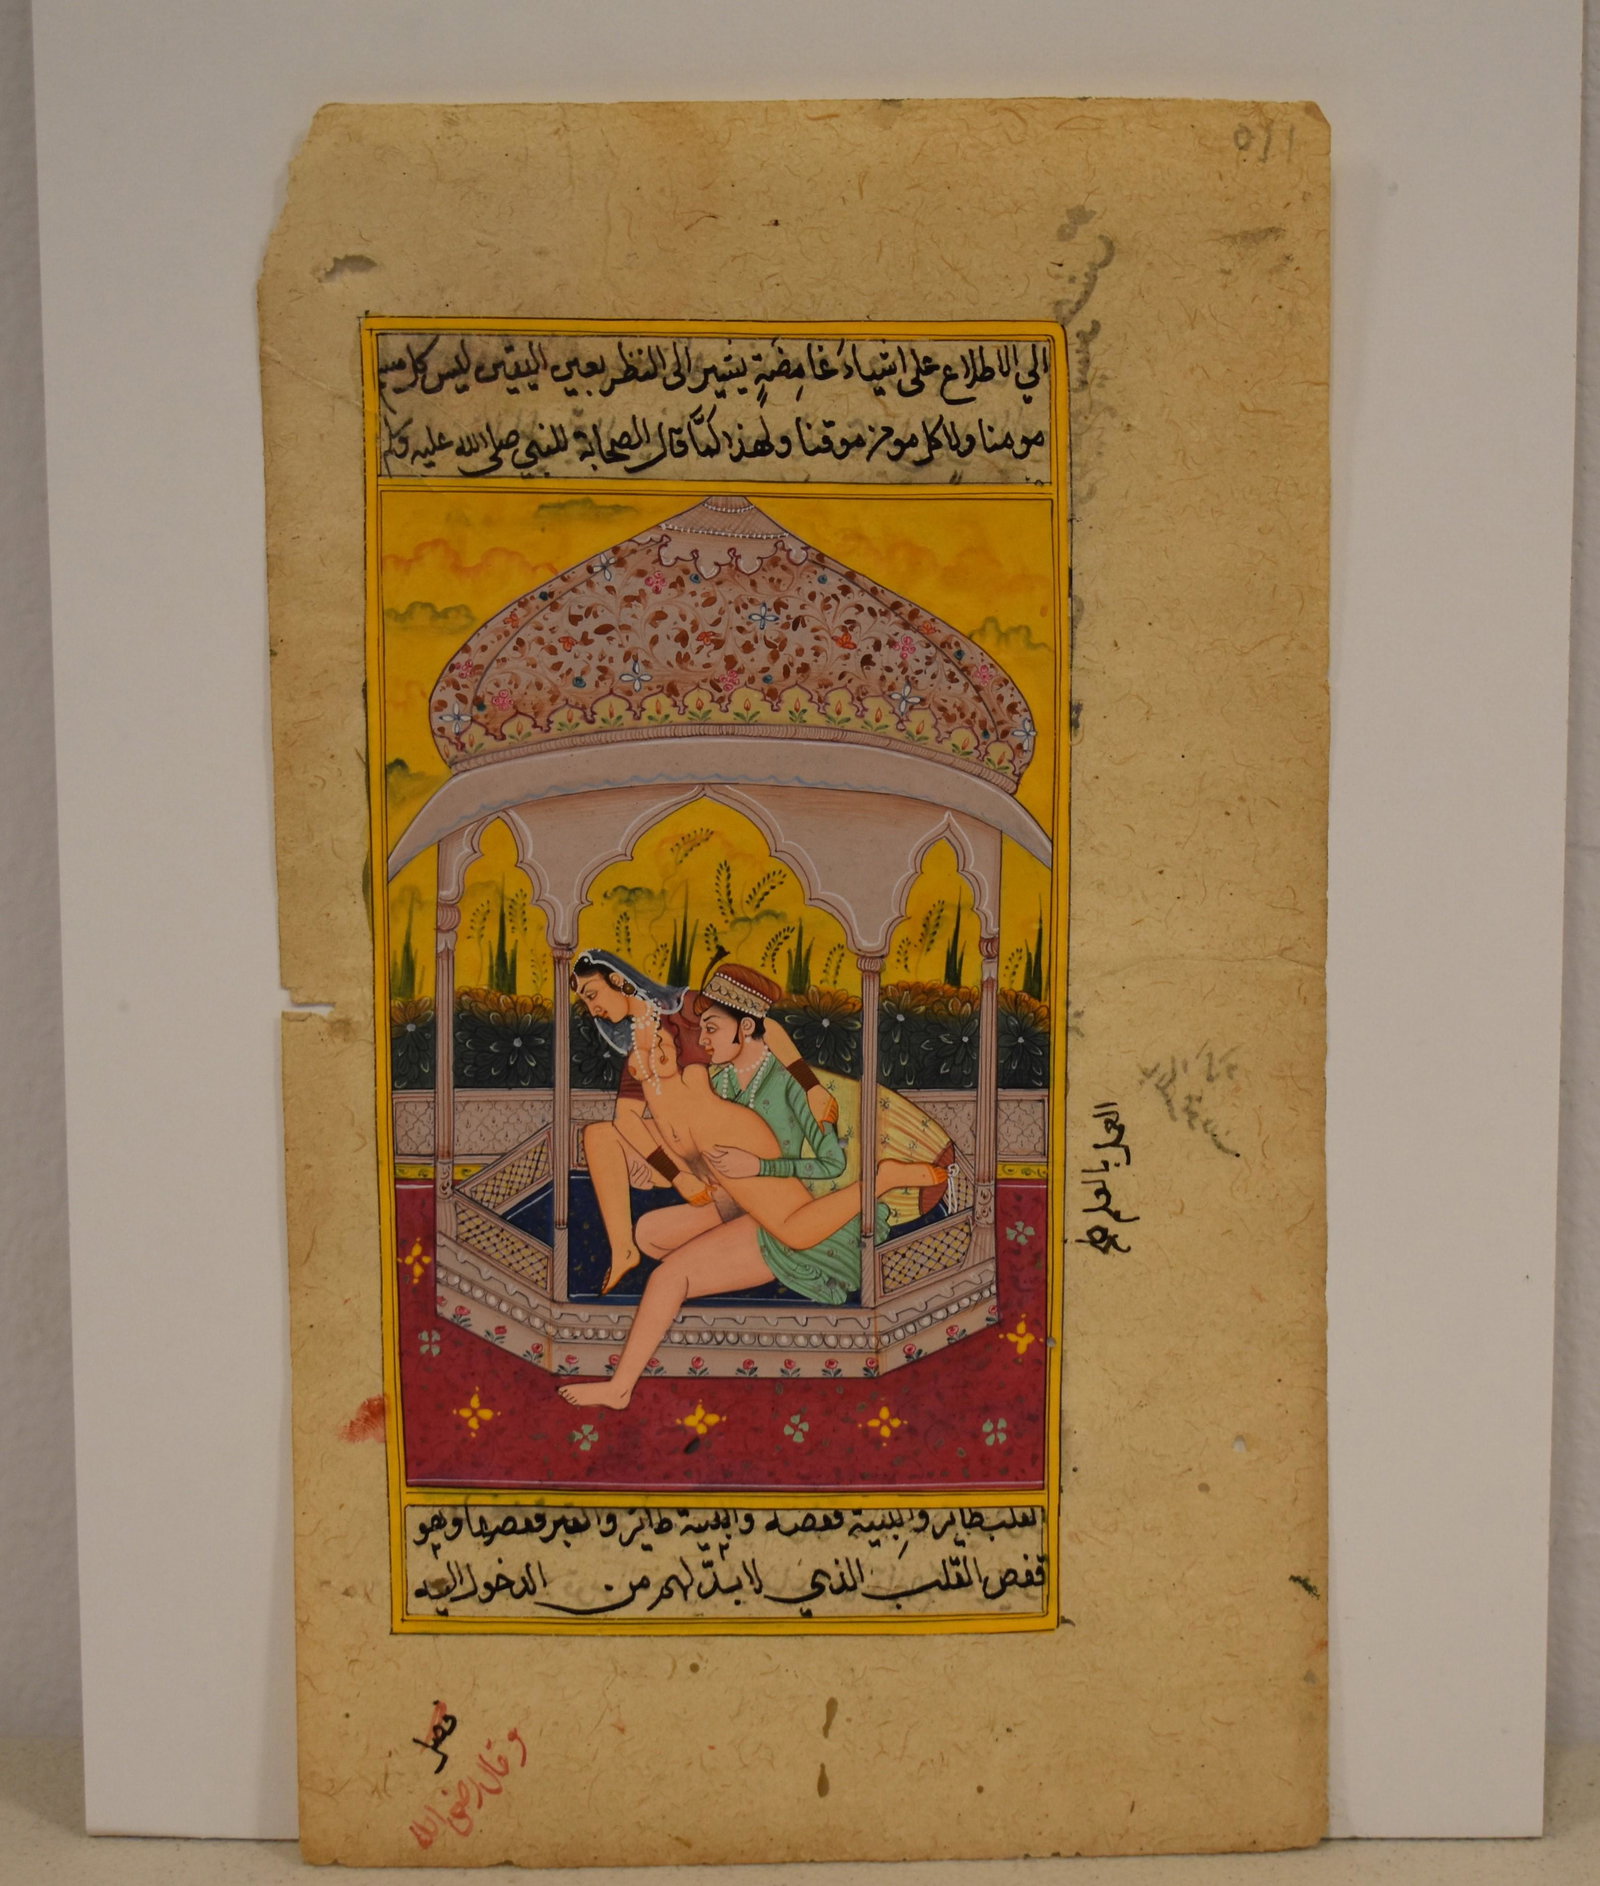 الي الاطلاع على اشياءَ غَامِضَةٍ يشير الى النظر بعين اليقين ليس كل
مومنا ولا كل مومن موقنا ولهذا لمَّا قال الصحابة للنبي صلى الله عليه وسلم
القلب طاير والبنية قفصه والبنية طاير والقبر قفصها وهو
قفص القلب الذي لا بدّ لهم من الدخول اليه
العمل بالعلم
فصل
وقال رضي الله